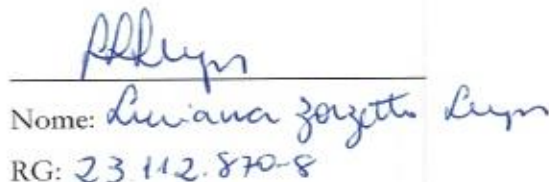 Nome: Luciana Zorzetto
RG: 23.112.870-8